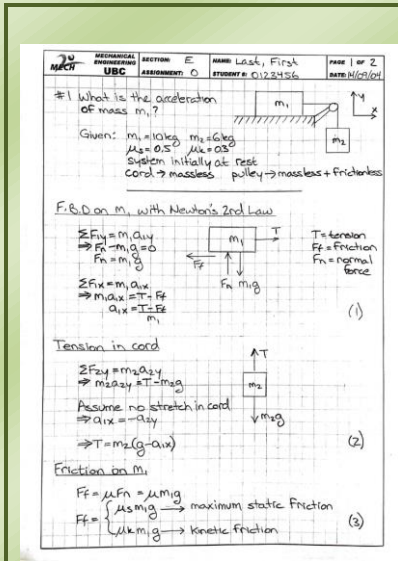 MECH 2
MECHANICAL ENGINEERING UBC
SECTION: E
ASSIGNMENT: 0
NAME: Last, First
STUDENT #: 0123456
PAGE 1 OF 2
DATE: 14/09/04
#1 What is the acceleration
of mass m₁?
m₁
y
x
m₂
Given: m₁=10kg m₂=6kg
μs=0.5 μk=0.3
system initially at rest
cord → massless pulley → massless + frictionless
F.B.D on m₁ with Newton's 2nd Law
ΣF₁y=m₁a₁y
⇒ Fn-m₁g=0
Fn=m₁g
m₁
T
Ff
Fn m₁g
T=tension
Ff=friction
Fn=normal
force
ΣF₁x=m₁a₁x
⇒ m₁a₁x=T-Ff
a₁x=T-Ff
m₁
(1)
Tension in cord
ΣF₂y=m₂a₂y
⇒ m₂a₂y=T-m₂g
T
m₂
m₂g
Assume no stretch in cord
⇒ a₁x=-a₂y
⇒T=m₂(g-a₁x)
(2)
Friction on m₁
Ff=μFn=μm₁g
Ff= { μsm₁g → maximum static friction
μkm₁g → kinetic friction
(3)